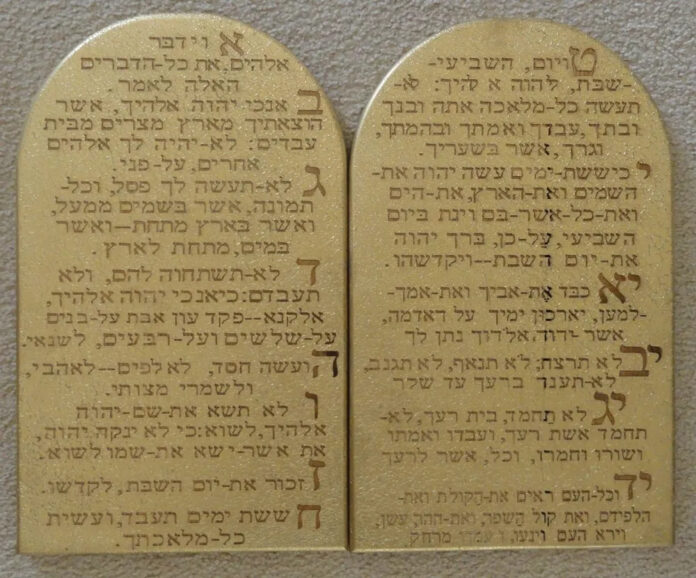 א וידבר
אלהים, את כל-הדברים
האלה לאמר.
ב אנכי יהוה אלהיך, אשר
הוצאתיך מארץ מצרים מבית
עבדים: לא-יהיה לך אלהים
אחרים, על-פני.
ג לא-תעשה לך פסל, וכל-
תמונה, אשר בשמים ממעל,
ואשר בארץ מתחת--ואשר
במים, מתחת לארץ.
ד לא-תשתחוה להם, ולא
תעבדם: כיאנכי יהוה אלהיך,
אלקנא--פקד עון אבת על-בנים
על-שלשים ועל-רבעים, לשנאי.
ה ועשה חסד, לאלפים--לאהבי,
ולשמרי מצותי.
ו לא תשא את-שם-יהוה
אלהיך, לשוא: כי לא ינקה יהוה,
את אשר-ישא את-שמו לשוא.
ז זכור את-יום השבת, לקדשו.
ח ששת ימים תעבד, ועשית
כל-מלאכתך.
ט ויום, השביעי-
-שבת, ליהוה אלהיך: לא-
תעשה כל-מלאכה אתה ובנך
ובתך, עבדך ואמתך ובהמתך,
וגרך, אשר בשעריך.
י כיששת-ימים עשה יהוה את-
השמים ואת-הארץ, את-הים
ואת-כל-אשר-בם וינח ביום
השביעי, על-כן, ברך יהוה
את-יום השבת--ויקדשהו.
יא כבד את-אביך ואת-אמך-
-למען, יארכון ימיך על האדמה,
אשר-יהוה אלהיך נתן לך
יב לא תרצח; לא תנאף, לא תגנב,
לא-תענה ברעך עד שקר
יג לא תחמד, בית רעך, לא-
תחמד אשת רעך, ועבדו ואמתו
ושורו וחמרו, וכל, אשר לרעך
יד וכל-העם ראים את-הקולת ואת-
הלפידם, ואת קול השפר, ואת-ההר, עשן,
וירא העם וינעו, ויעמדו מרחק